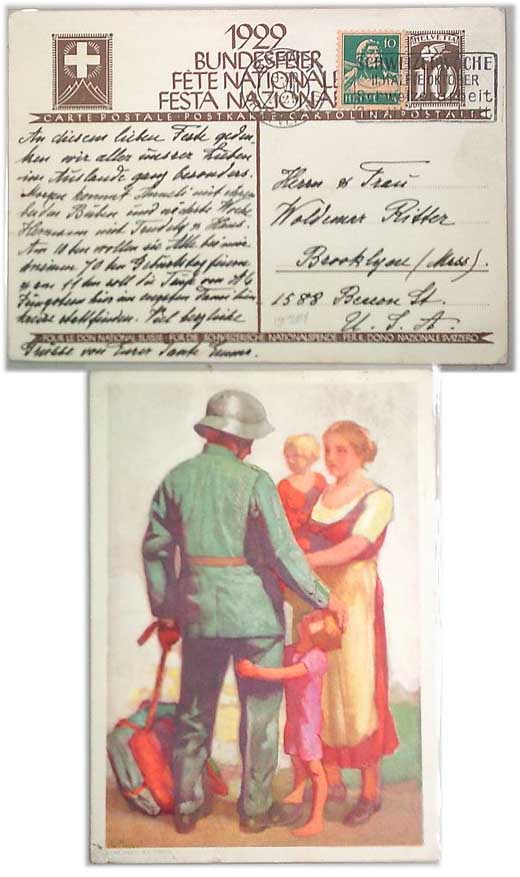 1929
BUNDESFEIER
FÊTE NATIONALE
FESTA NAZIONA
10
HELVETIA
HELVETIA
SCHWEIZERWOCHE
II. HÄLFTE OKTOBER
Schweizerarbeit
CARTE POSTALE · POSTKARTE · CARTOLINA POSTALE
An diesem lieben Feste geden-
ken wir aller unserer Lieben
im Auslande ganz besonders.
Morgen kommt Anneli mit ihren
beiden Buben und nächste Woche
Hermann mit Trudely & Hans.
Am 10ten wollen sie Alle bei mir
meinen 70ten Geburtstag feiern
& am 11ten soll die Taufe von
hier im engsten Familien
kreise stattfinden. Viel herzliche
Grüsse von Eurer Tante Emma.
Herrn & Frau
Woldemar Ritter
Brooklyne (Mass).
1588 Beacon St.
U. S. A.
POUR LE DON NATIONAL SUISSE · FÜR DIE SCHWEIZERISCHE NATIONALSPENDE · PER IL DONO NAZIONALE SVIZZERO